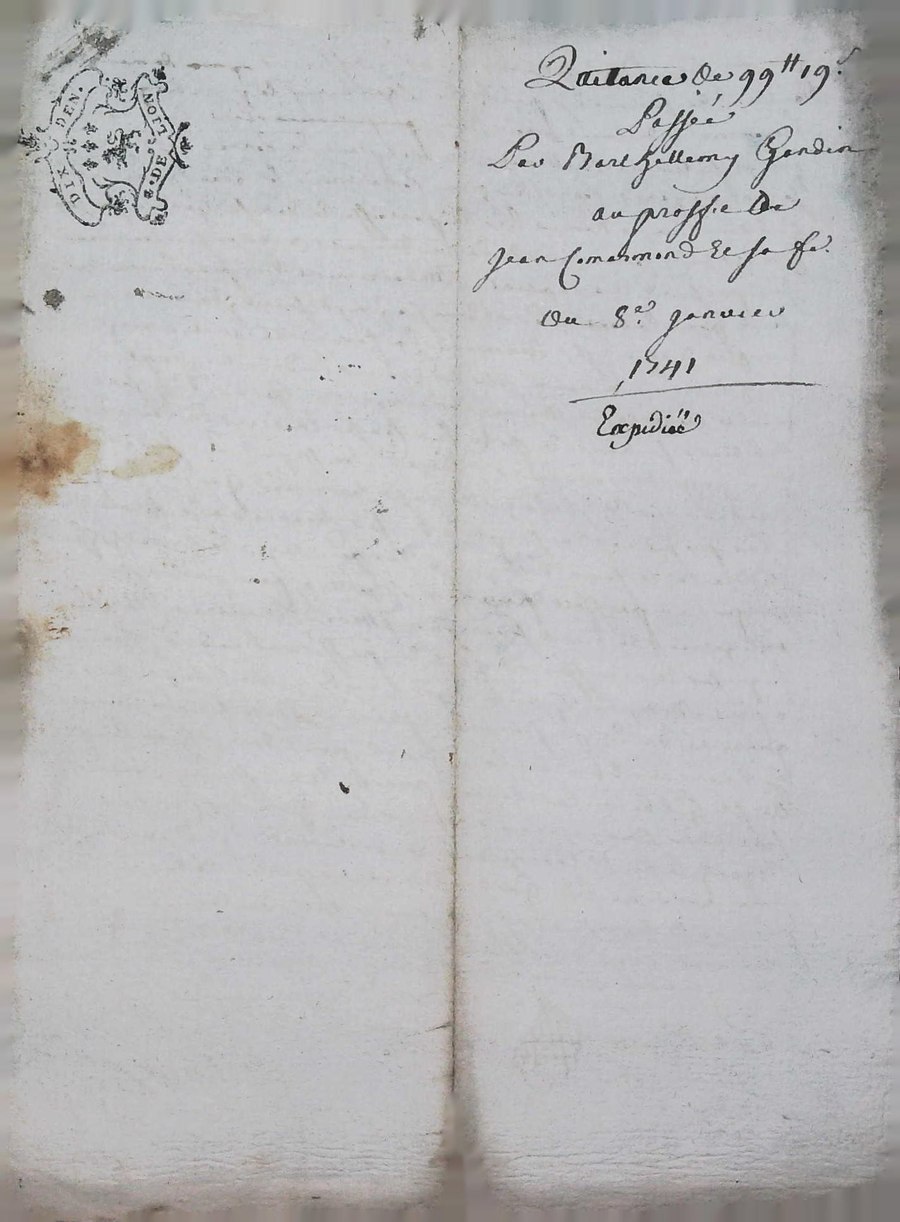 DIX DEN.
G. DE NOIT
Quitance de 99tt 19s
Passée
Par Barthellemy Gandin
au proffie de
Jean Comarmond Et sa fe.
du 8e janvier
1741
Expediée